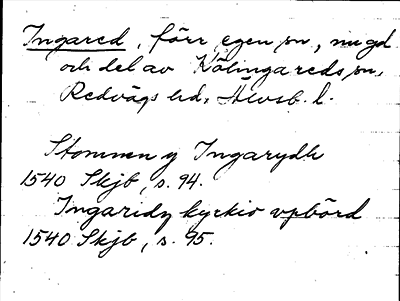 Ingared, förr egen sn, nu gd
och del av Kölingareds sn,
Redvägs hd, Älvsb. l.
Stommen y Ingarydh
1540 Skjb, s. 94.
Ingaridz kyrkio vpbörd
1540 Skjb, s. 95.